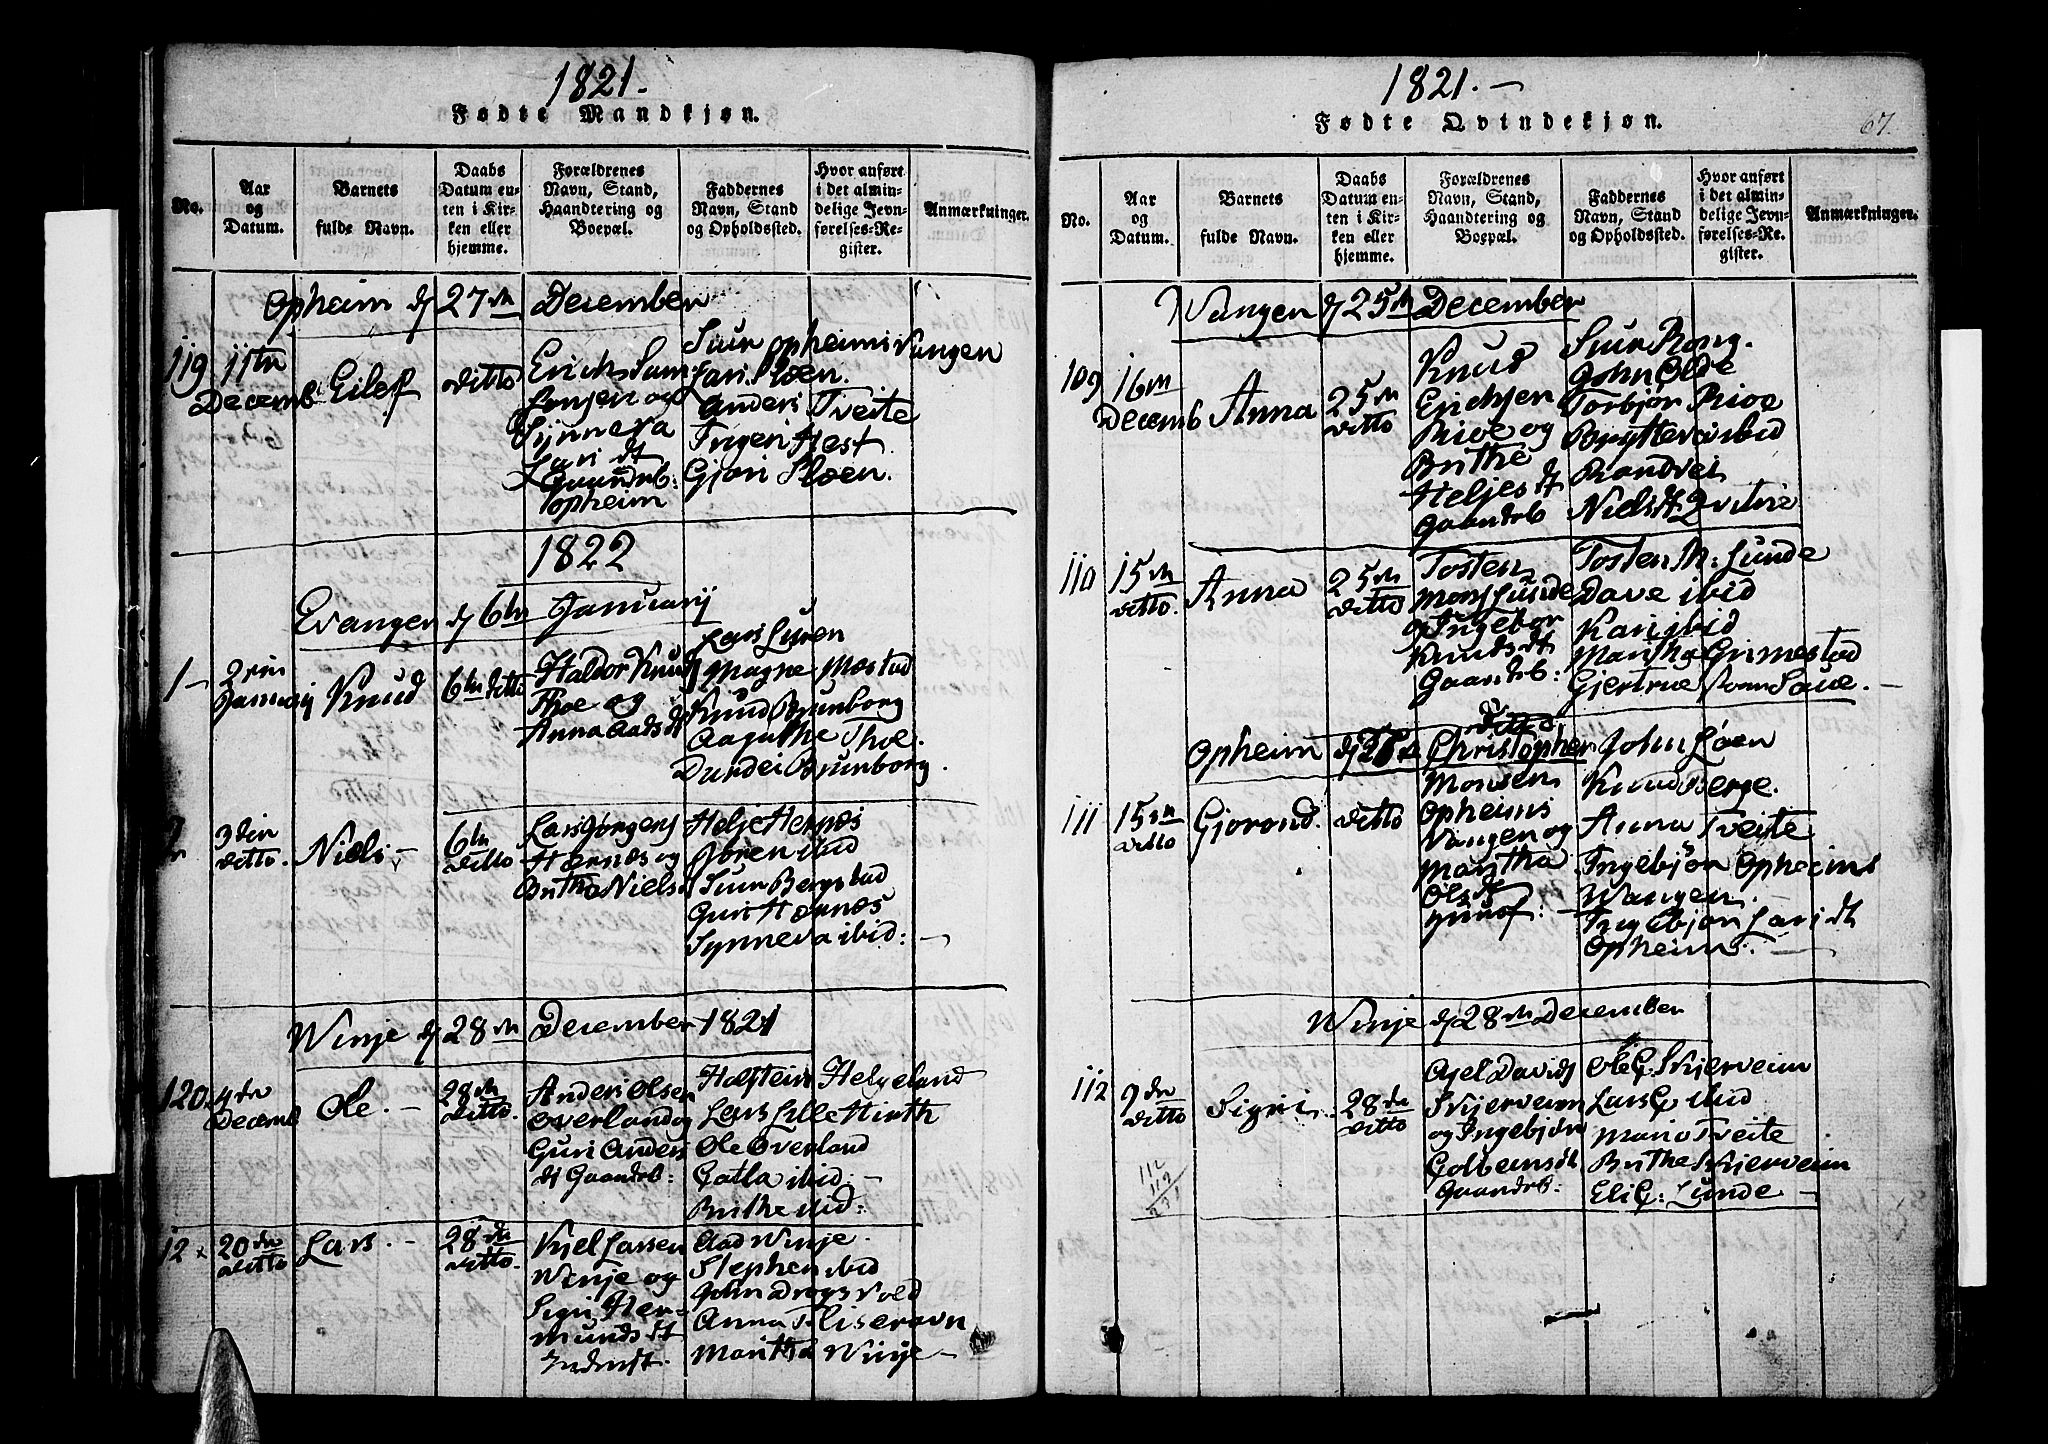 1821.
Fødte Mandkjøn.
No.
Aar
og
Datum.
Barnets
fulde Navn.
Daabs
Datum en-
ten i Kir-
ken eller
hjemme.
Forældrenes
Navn, Stand,
Haandtering og
Boepæl.
Faddernes
Navn, Stand
og Opholdssted.
Hvor anført
i det almin-
delige Jevn-
førelses-Re-
gister.
Anmærkninger.
Opheim d 27de December
119
11te
Decemb
Eilef
ditto
Erich
og
Synneva
Lars dt
Gaardb:
Opheim
Siur Opheimsvangen
Lars Kloen.
Anders Tveite
Ingeri Hest
Gjøri Kloen.
1822
Evanger d 6te Januarij
1
2den
Januarij
Knud
6te ditto
Haldor Knuds
Thoe og
Anna Aads dt
Lars Luren
Magne Mostad
Knud Brunborg
Aagathe Thoe.
Durdei Brunborg.
2
3die
ditto.
Niels
6te
ditto
Lars Jørgens
Hærnæs og
Britha Niels
Helje Hernæs
Jøren ibid
Siur Bergstad
Guri Hernæs
Synneva ibid:
Winje d 28de December 1821
120.
4de
Decemb
Ole.
28de
ditto.
Anders Olsen
Overland og
Guri Anders
dt Gaardb:
Holstein Helgeland
Lars Lille Hirth
Ole Overland
Gatla ibid.
Brithe ibid:
12
20de
ditto
Lars.
28de
ditto.
Kjel Larsen
Winje og
Sigri Her-
munds dt
Inderst.
Aad Winje.
Stephen ibid
John Drogsvold
Anna Fliseravn
Maritha Winje
1821.
Fødte Qvindekjøn.
67.
No.
Aar
og
Datum.
Barnets
fulde Navn.
Daabs
Datum en-
ten i Kir-
ken eller
hjemme.
Forældrenes
Navn, Stand,
Haandtering og
Boepæl.
Faddernes
Navn, Stand
og Opholdssted.
Hvor anført
i det almin-
delige Jevn-
førelses-Re-
gister.
Anmærkninger.
Wangen d 25de December
109
16de
Decemb
Anna
25de
ditto.
Knud
Erichsen
Rioe og
Brithe
Heljes dt
Gaardb
Siur Rong.
John Olde
Torbjør Rioe
Brytteva ibid
Randvei
Niels dt Qvitne
110
15de
ditto.
Anna
25de
ditto
Tosten
Mons Lunde
og Ingebor
Knuds dt
Gaardb:
Tosten M: Lunde
Dave ibid
Kari ibid
Martha Grimestad
Gjertrue Saue.
Opheim
ditto
111
15de
ditto
Gjorond.
ditto
Christopher
Monsen
Opheims
Vangen og
Martha
Ols dt
John Løen
Knud Berge.
Anna Tveite
Ingebjør Opheims
Wangen.
Ingebjør Lars dt
Opheim.
Winje d 28de December
112
9de
ditto
Sigri
28de
ditto
Ajel Davids
Skjerveim
og Ingebjør
Gaardb.
Ole G Skjerveim
Lars G ibid
Mario Tveite
Brithe Skjerveim
Eli G: Lunde
112
119
231